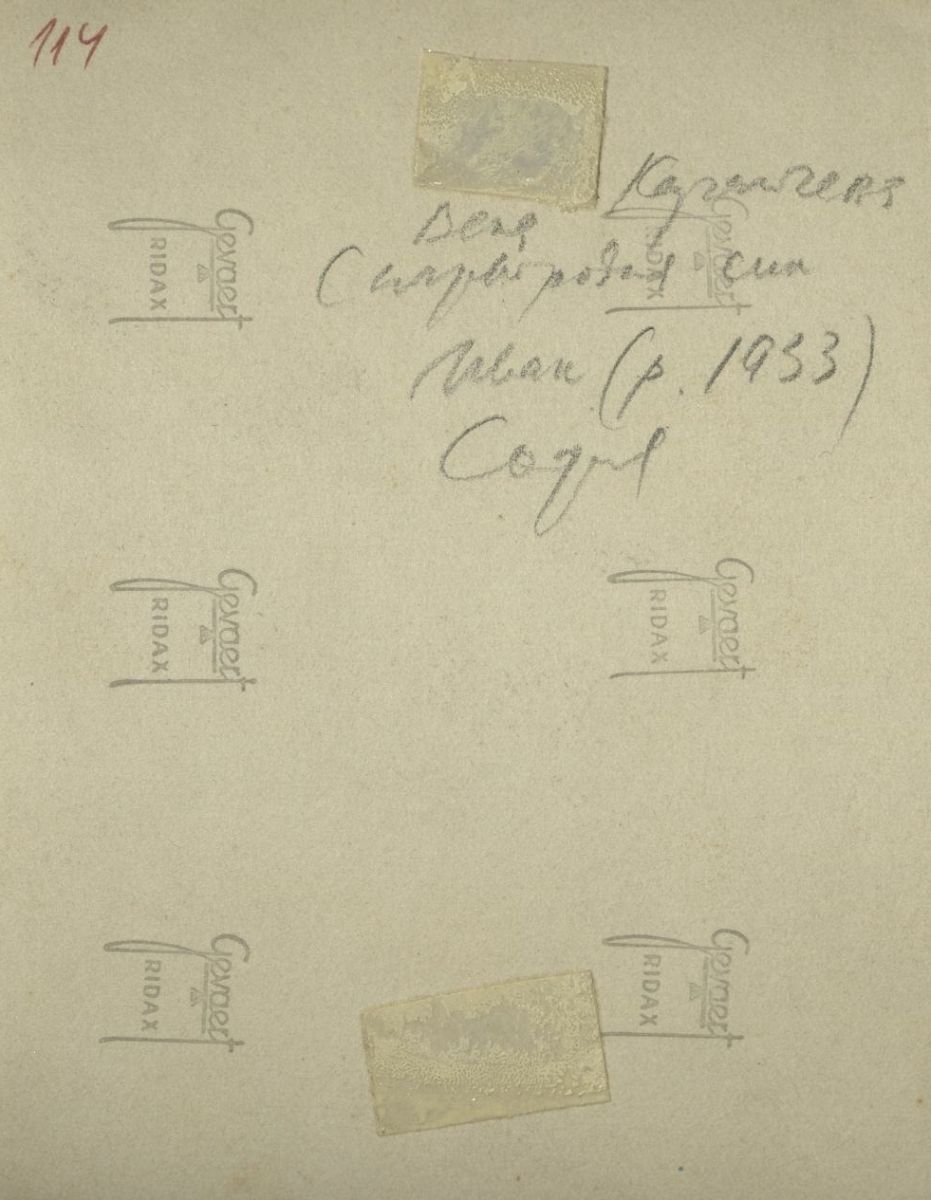 114
Дена
С първородния син
Иван (р. 1933)
София
Gevaert
RIDAX
Gevaert
RIDAX
Gevaert
RIDAX
Gevaert
RIDAX
Gevaert
RIDAX
Gevaert
RIDAX